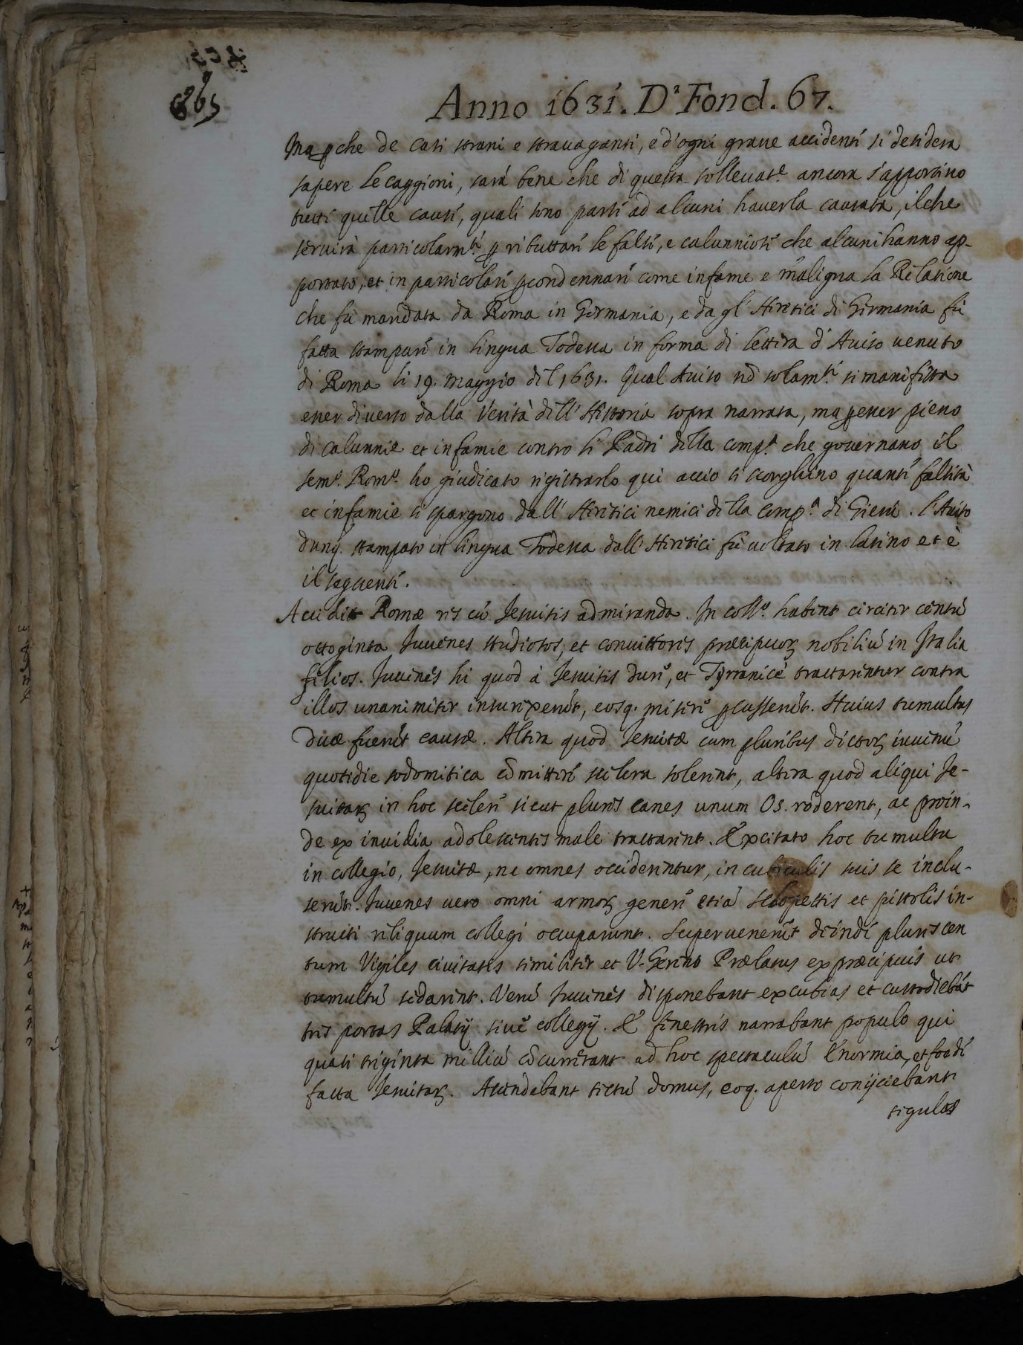 865
Anno 1631. D' Fond. 67.
Ma pche de casi strani e stravaganti, e d'ogni grave accidenti si desidera
sapere le caggioni, sarà bene che di questa sollevat.e ancora s'apportino
tutti quelle causi, quali sono parsi ad alcuni haverla causata, ilche
servirà particolarm.ti p ributtari le falsi, e calunniosi che alcuni hanno ap-
portato, et in particolari p condennari come infame e maligna la Relatione
che fù mandata da Roma in Germania, e da gl' Hiretici di Girmania fù
fatta stampari in lingua Todesca in forma di lettira d'Aviso venuto
di Roma li 19. maggio dil 1631. Qual Aviso nō solam.ti si manifista
esser diverso dalla verità dill' Historia sopra narrata, ma p esser pieno
di calunnie et infamie contro li Padri dilla comp.a che governano il
sem.o Rom.o ho giudicato rigistrarlo qui accio si scorghino quanti falsità
et infamie si spargono dall' Hiretici nemici dilla comp.a di Giesù. L'Aviso
dunq. stampato in lingua Todesca dall' Hiretici fù voltato in latino et è
il seguenti.
Accidit Romæ ris cū Jesuitis admiranda. In coll.o habent circiter centū
octoginta Juvenes studiosos, et convittoris præcipuoꝝ nobiliū in Italia
filios. Juvenes hi quod à Jesuitis duri, et Tyrranicè tractarintur contra
illos unanimitir insurrexerūt, eosq. misere pcusserūt. Huius tumultus
duæ fuerūt causæ. Altira quod Jesuitæ cum pluribus dictoꝝ iuvinū
quotidie sodomitica cōmittiri scelera solerint, altira quod aliqui Je-
suitaꝝ in hoc sceleri sicut pluris canes unum Os roderent, ac proin-
de ex invidia adolescintis male tractarint. Excitato hoc tumultu
in collegio, Jesuitæ, ne omnes occiderintur, in cubiculis suis se inclu-
serūt. Juvenes vero omni armoꝝ generi etiā scloppettis et pistolis in-
structi riliquum collegi occuparunt. Supervenerūt deinde pluris cen
tum Vigiles civitatis similitir et Prælatus ex præcipuis ut
tumultū sedarint. Verū Juvinis disponebant excubias et custodiebāt
tris portas Palatij sive collegij. E finestris narrabant populo qui
quasi triginta milliū cōcurrerant ad hoc spectaculū Enormia, et foedi
facta Jesuitaꝝ. Ascendebant tictū domus, eoq. aperto conijciebant
tigulas